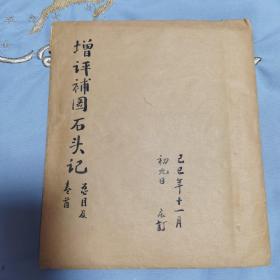 增评補圖石头记
总目及
卷首
己巳年十一月
初六日 訂